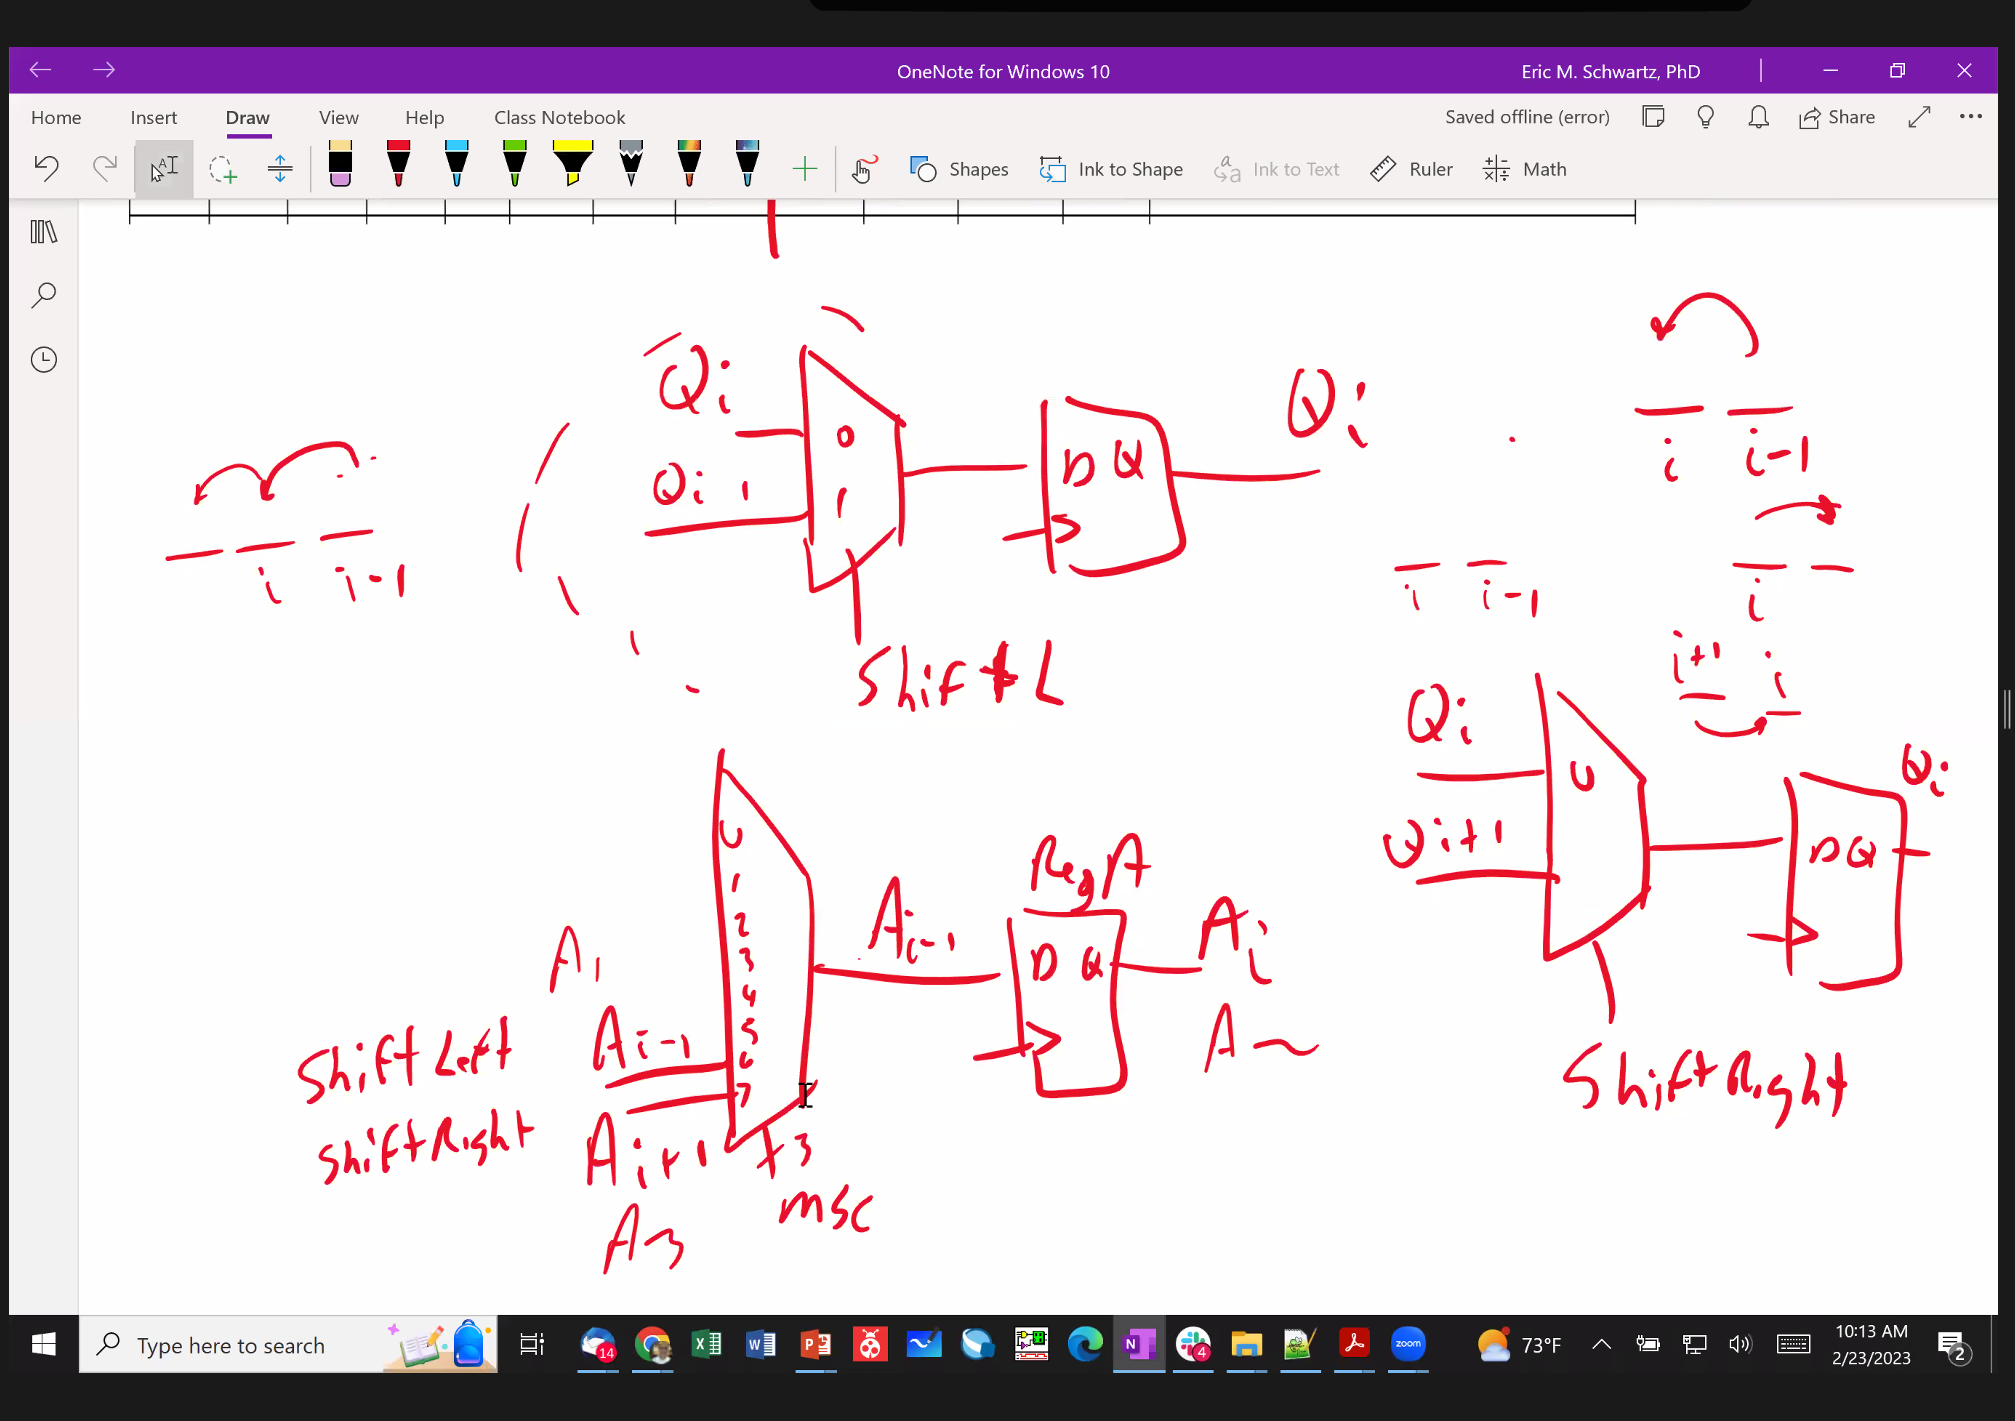 OneNote for Windows 10
Eric M. Schwartz, PhD
Home Insert Draw View Help Class Notebook
Saved offline (error) Share
Shapes Ink to Shape Ink to Text Ruler Math
Qi
0
Qi-1
1
D Q
Qi
Shift L
i i-1
i i-1
i i-1
i
i+1 i
Qi
0
Qi+1
D Q
Qi
Shift Right
0
1
2
3
4
5
6
7
A1
Shift Left Ai-1
Shift Right Ai+1
A3
3
MSC
Ai-1
Reg A
D Q
Ai
A2
Type here to search
14
4
zoom
73°F
10:13 AM
2/23/2023
2